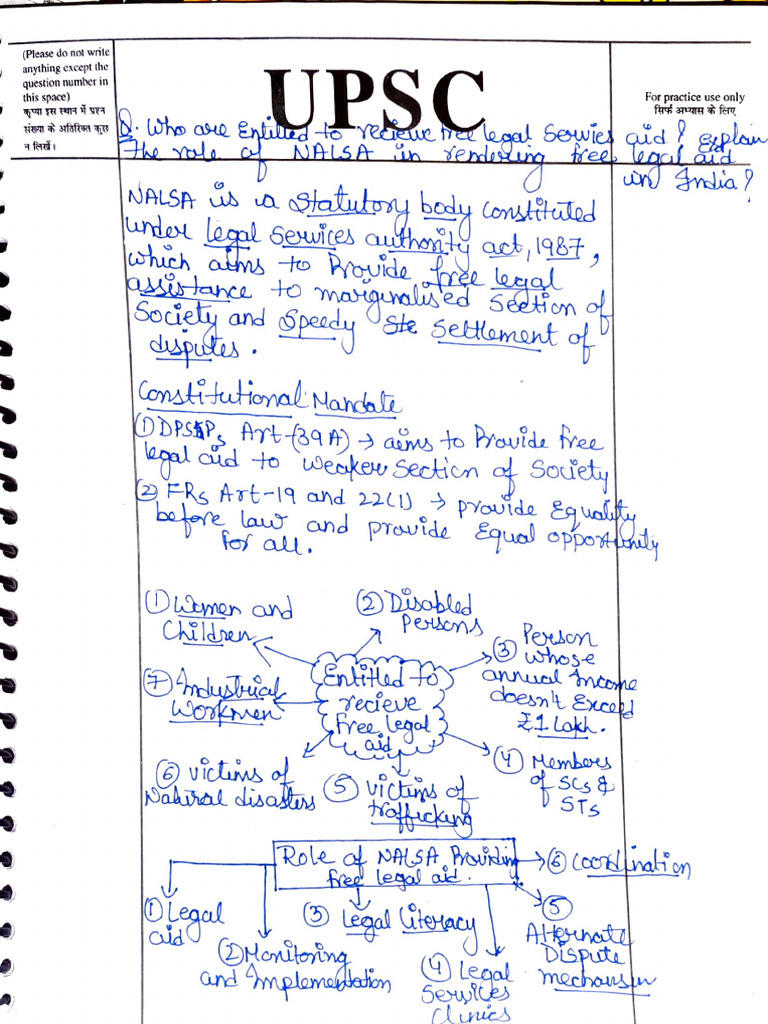 (Please do not write
anything except the
question number in
this space)
कृप्या इस स्थान में प्रश्न
संख्या के अतिरिक्त कुछ
न लिखें।
UPSC
For practice use only
सिर्फ अभ्यास के लिए
Q. Who are Entitled to recieve free legal Servies aid? Explain
the role of NALSA in rendering free legal aid
in India?
NALSA is a Statutory body constituted
under legal Services authority act, 1987,
which aims to Provide free legal
assistance to marginalised section of
Society and Speedy Settlement of
disputes.
Constitutional Mandate
(1) DPSPs Art-(39A) → aims to Provide free
legal aid to weaker section of Society
(2) FRs Art-19 and 22(1) → provide Equality
before law and provide Equal opportunity
for all.
Entitled to
recieve
free legal
aid
(1) Women and
Children
(2) Disabled
Persons
(3) Person
whose
annual Income
doesn't Exceed
₹1 Lakh.
(4) Members
of SCs &
STs
(5) Victims of
trafficking
(6) Victims of
Natural disasters
(7) Industrial
Workmen
Role of NALSA Providing
free legal aid.
(1) Legal
aid
(2) Monitoring
and Implementation
(3) Legal Literacy
(4) Legal
Services
Clinics
(5)
Alternate
Dispute
mechanism
(6) Coordination